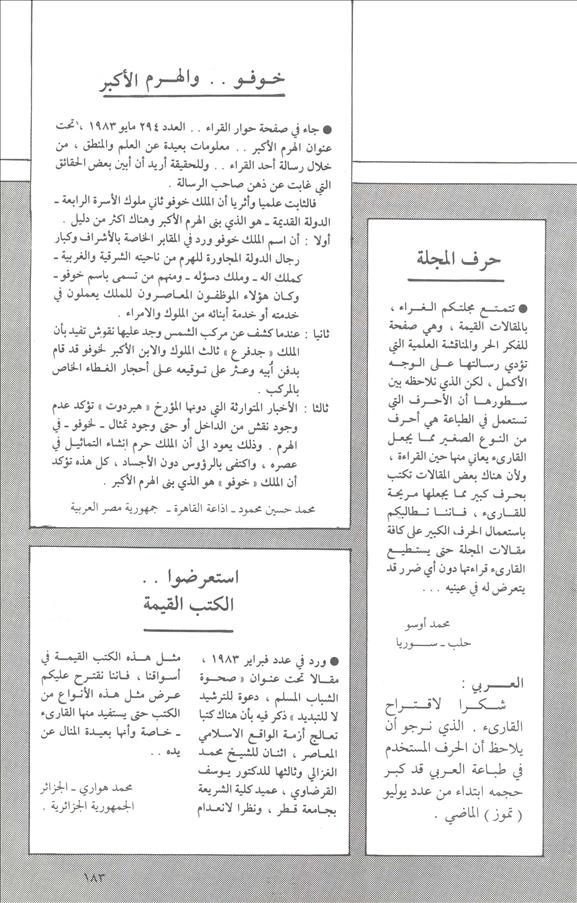 خـوفـو . . والهـرم الأكبر
● جاء في صفحة حوار القراء . . العدد ٢٩٤ مايو ١٩٨٣ ، تحت
عنوان الهرم الأكبر . . معلومات بعيدة عن العلم والمنطق ، من
خلال رسالة أحد القراء . . وللحقيقة أريد أن أبين بعض الحقائق
التي غابت عن ذهن صاحب الرسالة .
فالثابت علميا وأثريا أن الملك خوفو ثاني ملوك الأسرة الرابعة ـ
الدولة القديمة ـ هو الذي بنى الهرم الأكبر وهناك اكثر من دليل .
أولا : أن اسم الملك خوفو ورد في المقابر الخاصة بالأشراف وكبار
رجال الدولة المجاورة للهرم من ناحيته الشرقية والغربية ـ
كملك اله ـ وملك دسؤله ـ ومنهم من تسمى باسم خوفو ـ
وكان هؤلاء الموظفون المعاصرون للملك يعملون في
خدمته أو خدمة أبنائه من الملوك والامراء .
ثانيا : عندما كشف عن مركب الشمس وجد عليها نقوش تفيد بأن
الملك « جدفرع » ثالث الملوك والابن الأكبر لخوفو قد قام
بدفن أبيه وعثر على توقيعه على أحجار الغطاء الخاص
بالمركب .
ثالثا : الأخبار المتوارثة التي دونها المؤرخ « هيردوت » تؤكد عدم
وجود نقش من الداخل أو حتى وجود تمثال ـ لخوفو ـ في
الهرم . وذلك يعود الى أن الملك حرم إنشاء التماثيل في
عصره ، واكتفى بالرؤوس دون الأجساد ، كل هذه تؤكد
أن الملك « خوفو » هو الذي بنى الهرم الأكبر .
محمد حسين محمود ـ اذاعة القاهرة ـ جمهورية مصر العربية
حرف المجلة
● تتمتـع مجلتكم الغـراء ،
بالمقالات القيمة ، وهي صفحة
للفكر الحر والمناقشة العلمية التي
تؤدي رسالتها على الوجه
الأكمل ، لكن الذي نلاحظه بين
سطورها أن الأحرف التي
تستعمل في الطباعة هي أحرف
من النوع الصغير مما يجعل
القارىء يعاني منها حين القراءة ،
ولأن هناك بعض المقالات تكتب
بحرف كبير مما يجعلها مريحة
للقارىء ، فاننا نطالبكم
باستعمال الحرف الكبير على كافة
مقالات المجلة حتى يستطيع
القارىء قراءتها دون أي ضرر قد
يتعرض له في عينيه . . .
محمد أوسو
حلب ـ سـوريا
العـربي :
شكـرا لاقتـراح
القارىء . الذي نرجو أن
يلاحظ أن الحرف المستخدم
في طباعة العربي قد كبر
حجمه ابتداء من عدد يوليو
( تموز ) الماضي .
استعرضوا . .
الكتب القيمة
● ورد في عدد فبراير ١٩٨٣ ،
مقالا تحت عنوان « صحـوة
الشباب المسلم ، دعوة للترشيد
لا للتبديد » ذكر فيه بأن هناك كتبا
تعالج أزمة الواقع الاسلامي
المعاصر ، اثنان للشيخ محمد
الغزالي وثالثها للدكتور يوسف
القرضاوي ، عميد كلية الشريعة
بجامعة قطر ، ونظرا لانعدام
مثـل هـذه الكتب القيمة في
أسواقنا ، فاننا نقترح عليكم
عرض مثل هذه الأنواع من
الكتب حتى يستفيد منها القارىء
ـ خاصة وأنها بعيدة المنال عن
يده . .
محمد هواري ـ الجزائر
الجمهورية الجزائرية .
١٨٣